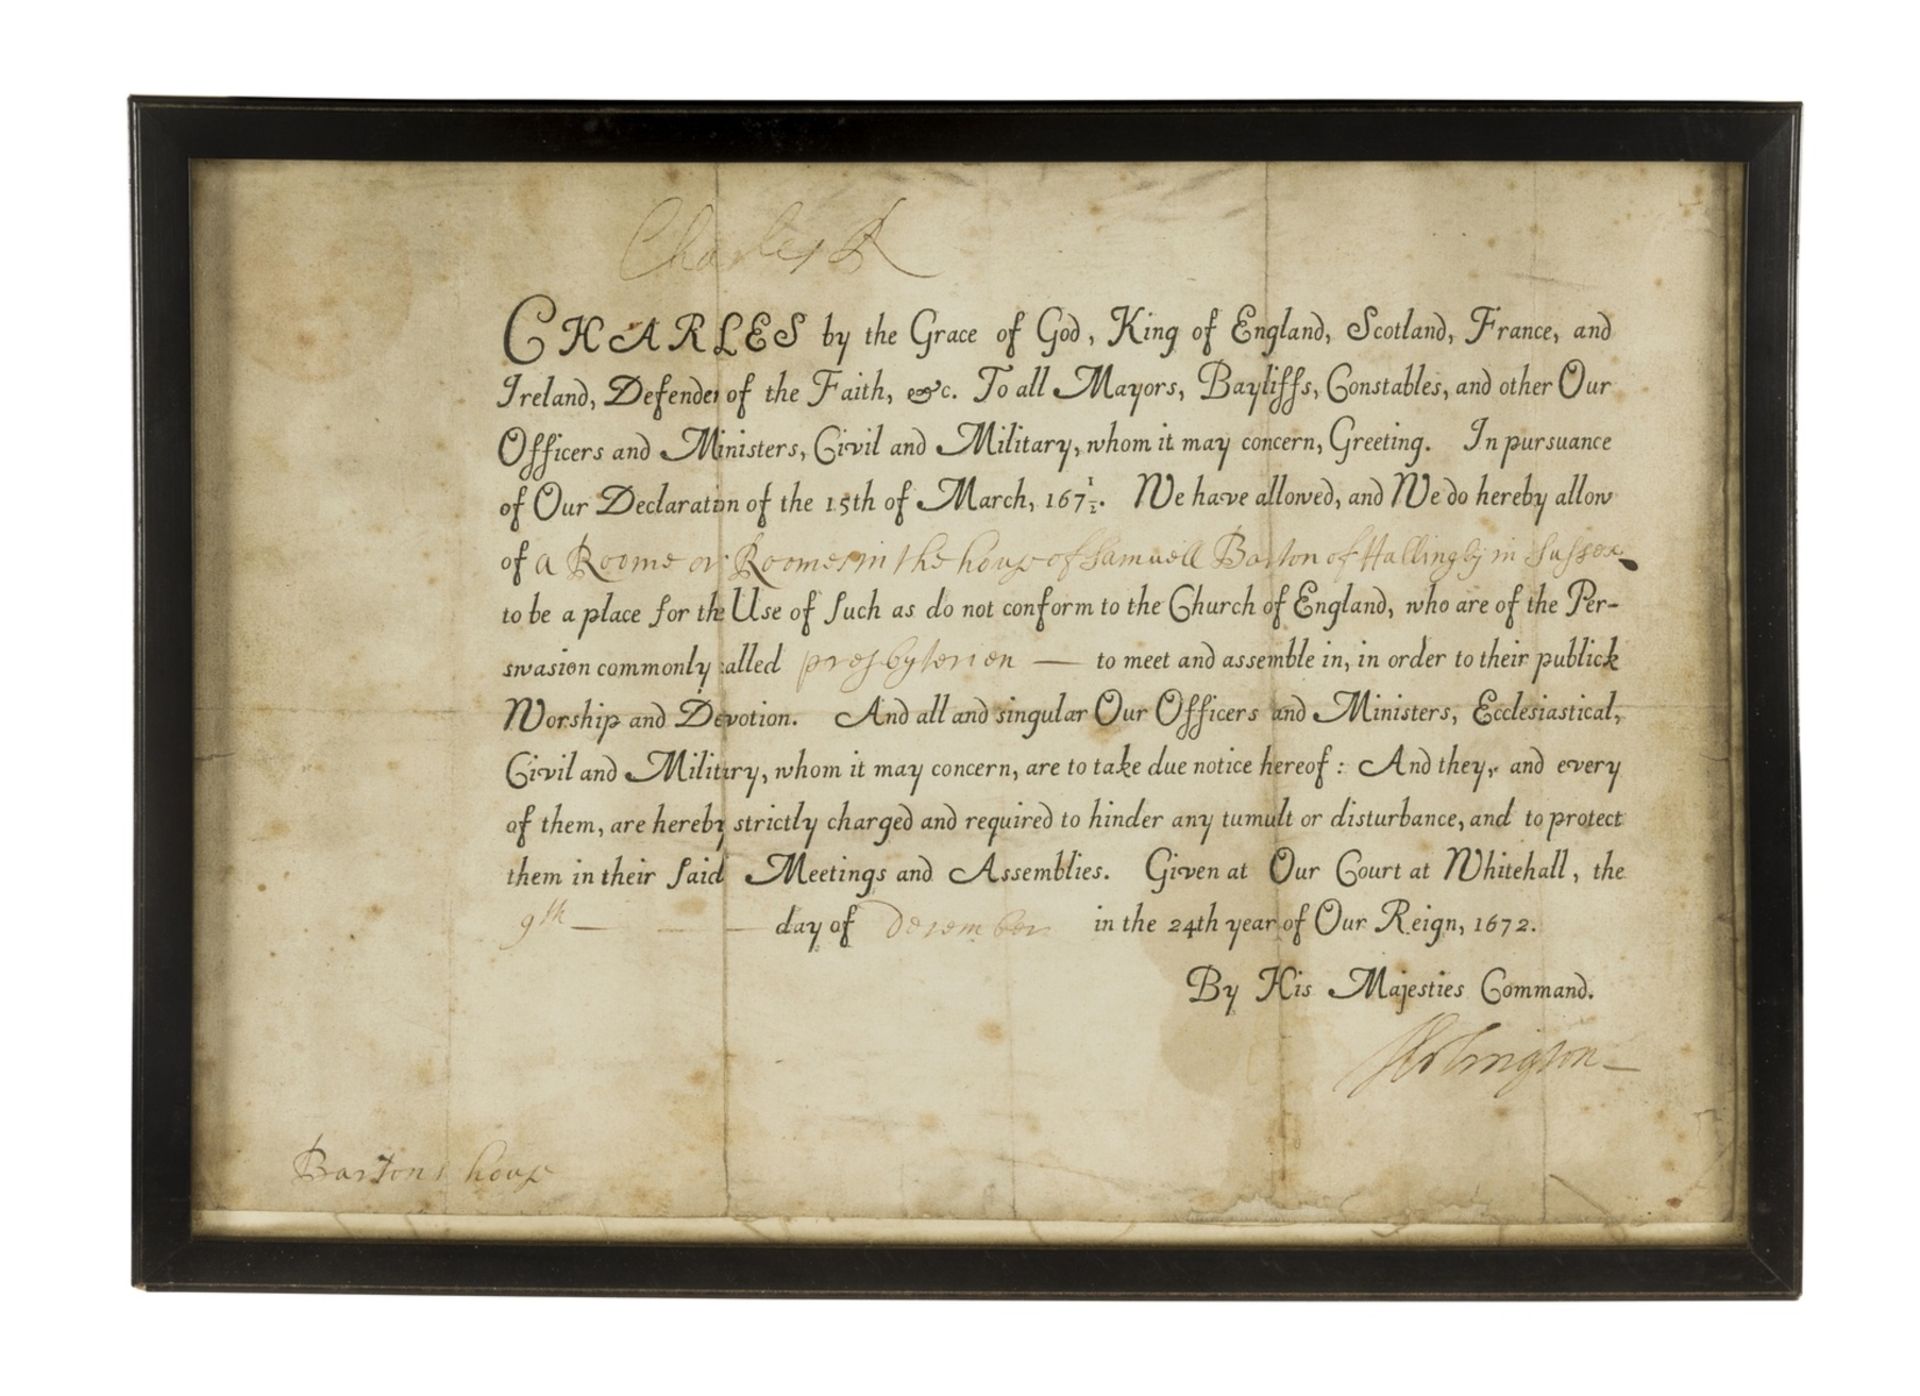 Charles R
CHARLES by the Grace of God, King of England, Scotland, France, and
Ireland, Defender of the Faith, &c. To all Mayors, Bayliffs, Constables, and other Our
Officers and Ministers, Civil and Military, whom it may concern, Greeting. In pursuance
of Our Declaration of the 15th of March, 167½. We have allowed, and We do hereby allow
of a Roome or Roomes in the house of Samuell Barton of Hallingly in Sussex
to be a place for the Use of such as do not conform to the Church of England, who are of the Per-
swasion commonly called presbyterien — to meet and assemble in, in order to their publick
Worship and Devotion. And all and singular Our Officers and Ministers, Ecclesiastical,
Civil and Military, whom it may concern, are to take due notice hereof: And they, and every
of them, are hereby strictly charged and required to hinder any tumult or disturbance, and to protect
them in their said Meetings and Assemblies. Given at Our Court at Whitehall, the
9th — day of December in the 24th year of Our Reign, 1672.
By His Majesties Command.
Arlington
Bartons house